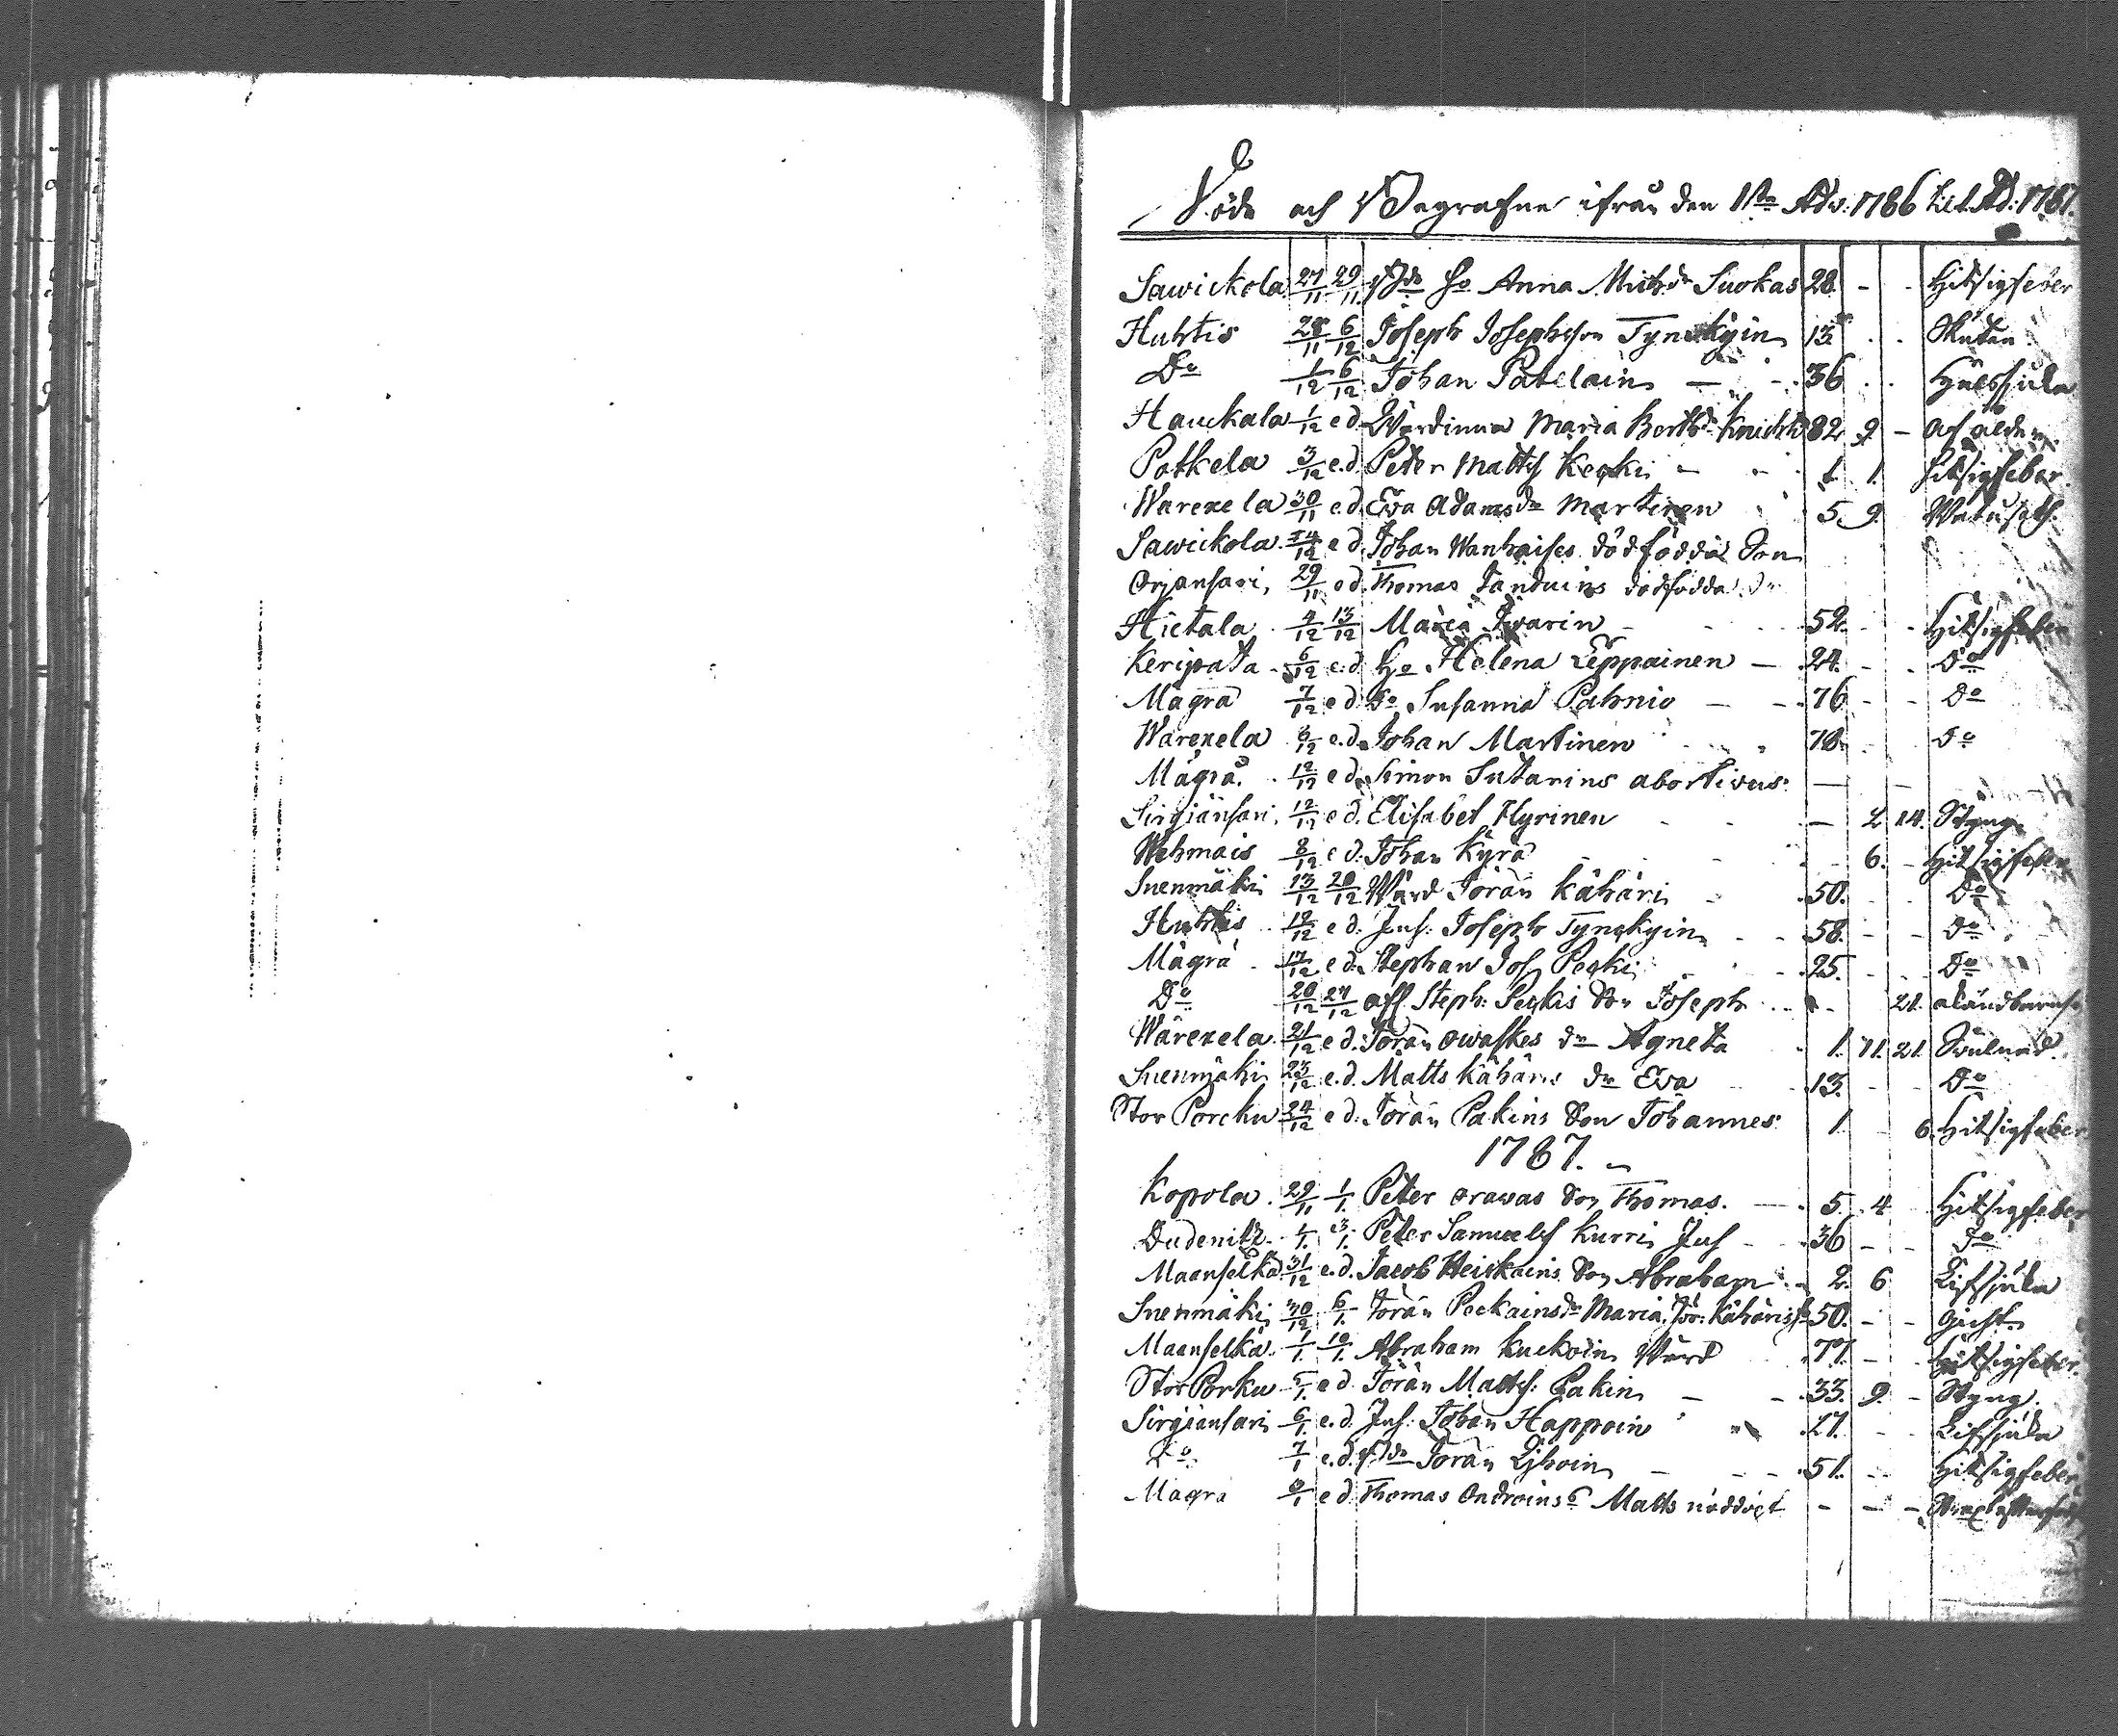 Döde och Begrafne ifrån den 1sta Adv: 1786 til Ad: 1787.
Sawickola 27/11 29/11 Bde Ho Anna Michsdr Suokas 28. - - Hitsigfeber
Huhtis 28/11 6/12 Joseph Josephsson Tynskyin 13.
Do 1/12 6/12 Johan Patelain - - 36 Halssiuka
Hauckala 1/12 e d. Wärdinna Maria Bertilsdr 82 9 - af ålder
Potkela 3/12 e.d. Peter Matts Kecki - - 1. 1. Hitsigfeber.
Warexela 30/11 e.d. Eva Adamsdr Martinen 5 9.
Sawickola 14/12 e d. Johan Wanhaises dödfödda Son
Orjansari, 29/11 e d. Thomas Tanduins dödfödda Dr
Hietala 4/12 13/12 Maria Iwarin - 52. - Hitsigfeber
Keripata 6/12 e.d. Ho Helena Leppainen - 24. - - Do
Mägrä 7/12 e d. Do Susanna Pahnio - 76 - - Do
Warexela 8/12 e.d. Johan Martinen 78. Do
Mägrä. 12/12 e d. Simon Sutarins abortivus. -
Sirgiänsari. 12/12 e d. Elisabet Hyrinen - 2 14. Styng
Wehmais 8/12 e d. Johan Kyrä 6. - Hitsigfeber
Suenmäki 13/12 20/12 Wärd Jöran Kähäri 50. Do
Huhtis 12/12 e d. Inh: Joseph Tynskyin 58. - - Do
Mägrä 17/12 e d. Stephan Jos Pecki 25. Do
Do 20/12 24/12 afl. Steph: Peckis Son Joseph 21.
Wärexela 21/12 e d. Jöran Owaskes dr Agneta 1. 11. 21. Svulnad.
Suenmäki 23/12 e.d. Matts Kähäris dr Eva 13. Do
Stor Porcku 24/12 e d. Jöran Pakins Son Johannes 1. 6. Hitsigfeber
1787.
Kopola 29/11 1/1. Peter Orawas Son Thomas. 5. 4 Hitsigfeber
Dudenitz 1/1. 3/1. Peter Samuels Kurri Inh - 36 - - Do
Maanselkä 31/12 e.d. Jacob Heiskains Son Abraham 2. 6 Lifssjuka
Suenmäki 30/12 6/1. Jöran Peckains dr Maria, Jör: Kähäris 50. - - Gicht
Maanselkä 1/1. 10/1. Abraham Kuckoin Wärd 77. - Hitsigfeber.
Stor Porku 5/1. e d. Jöran Matts: Pakin - 33. 9. - Styng.
Sirgiänsari 6/1. e.d. Inh: Johan Happoin 27. Lifssjuka
Do 7/1 e.d. Bde Jöran Ljhoin - 51. Hitsigfeber
Mägrä 8/1 e d. Thomas Ondroins Matts nöddöpt - - -